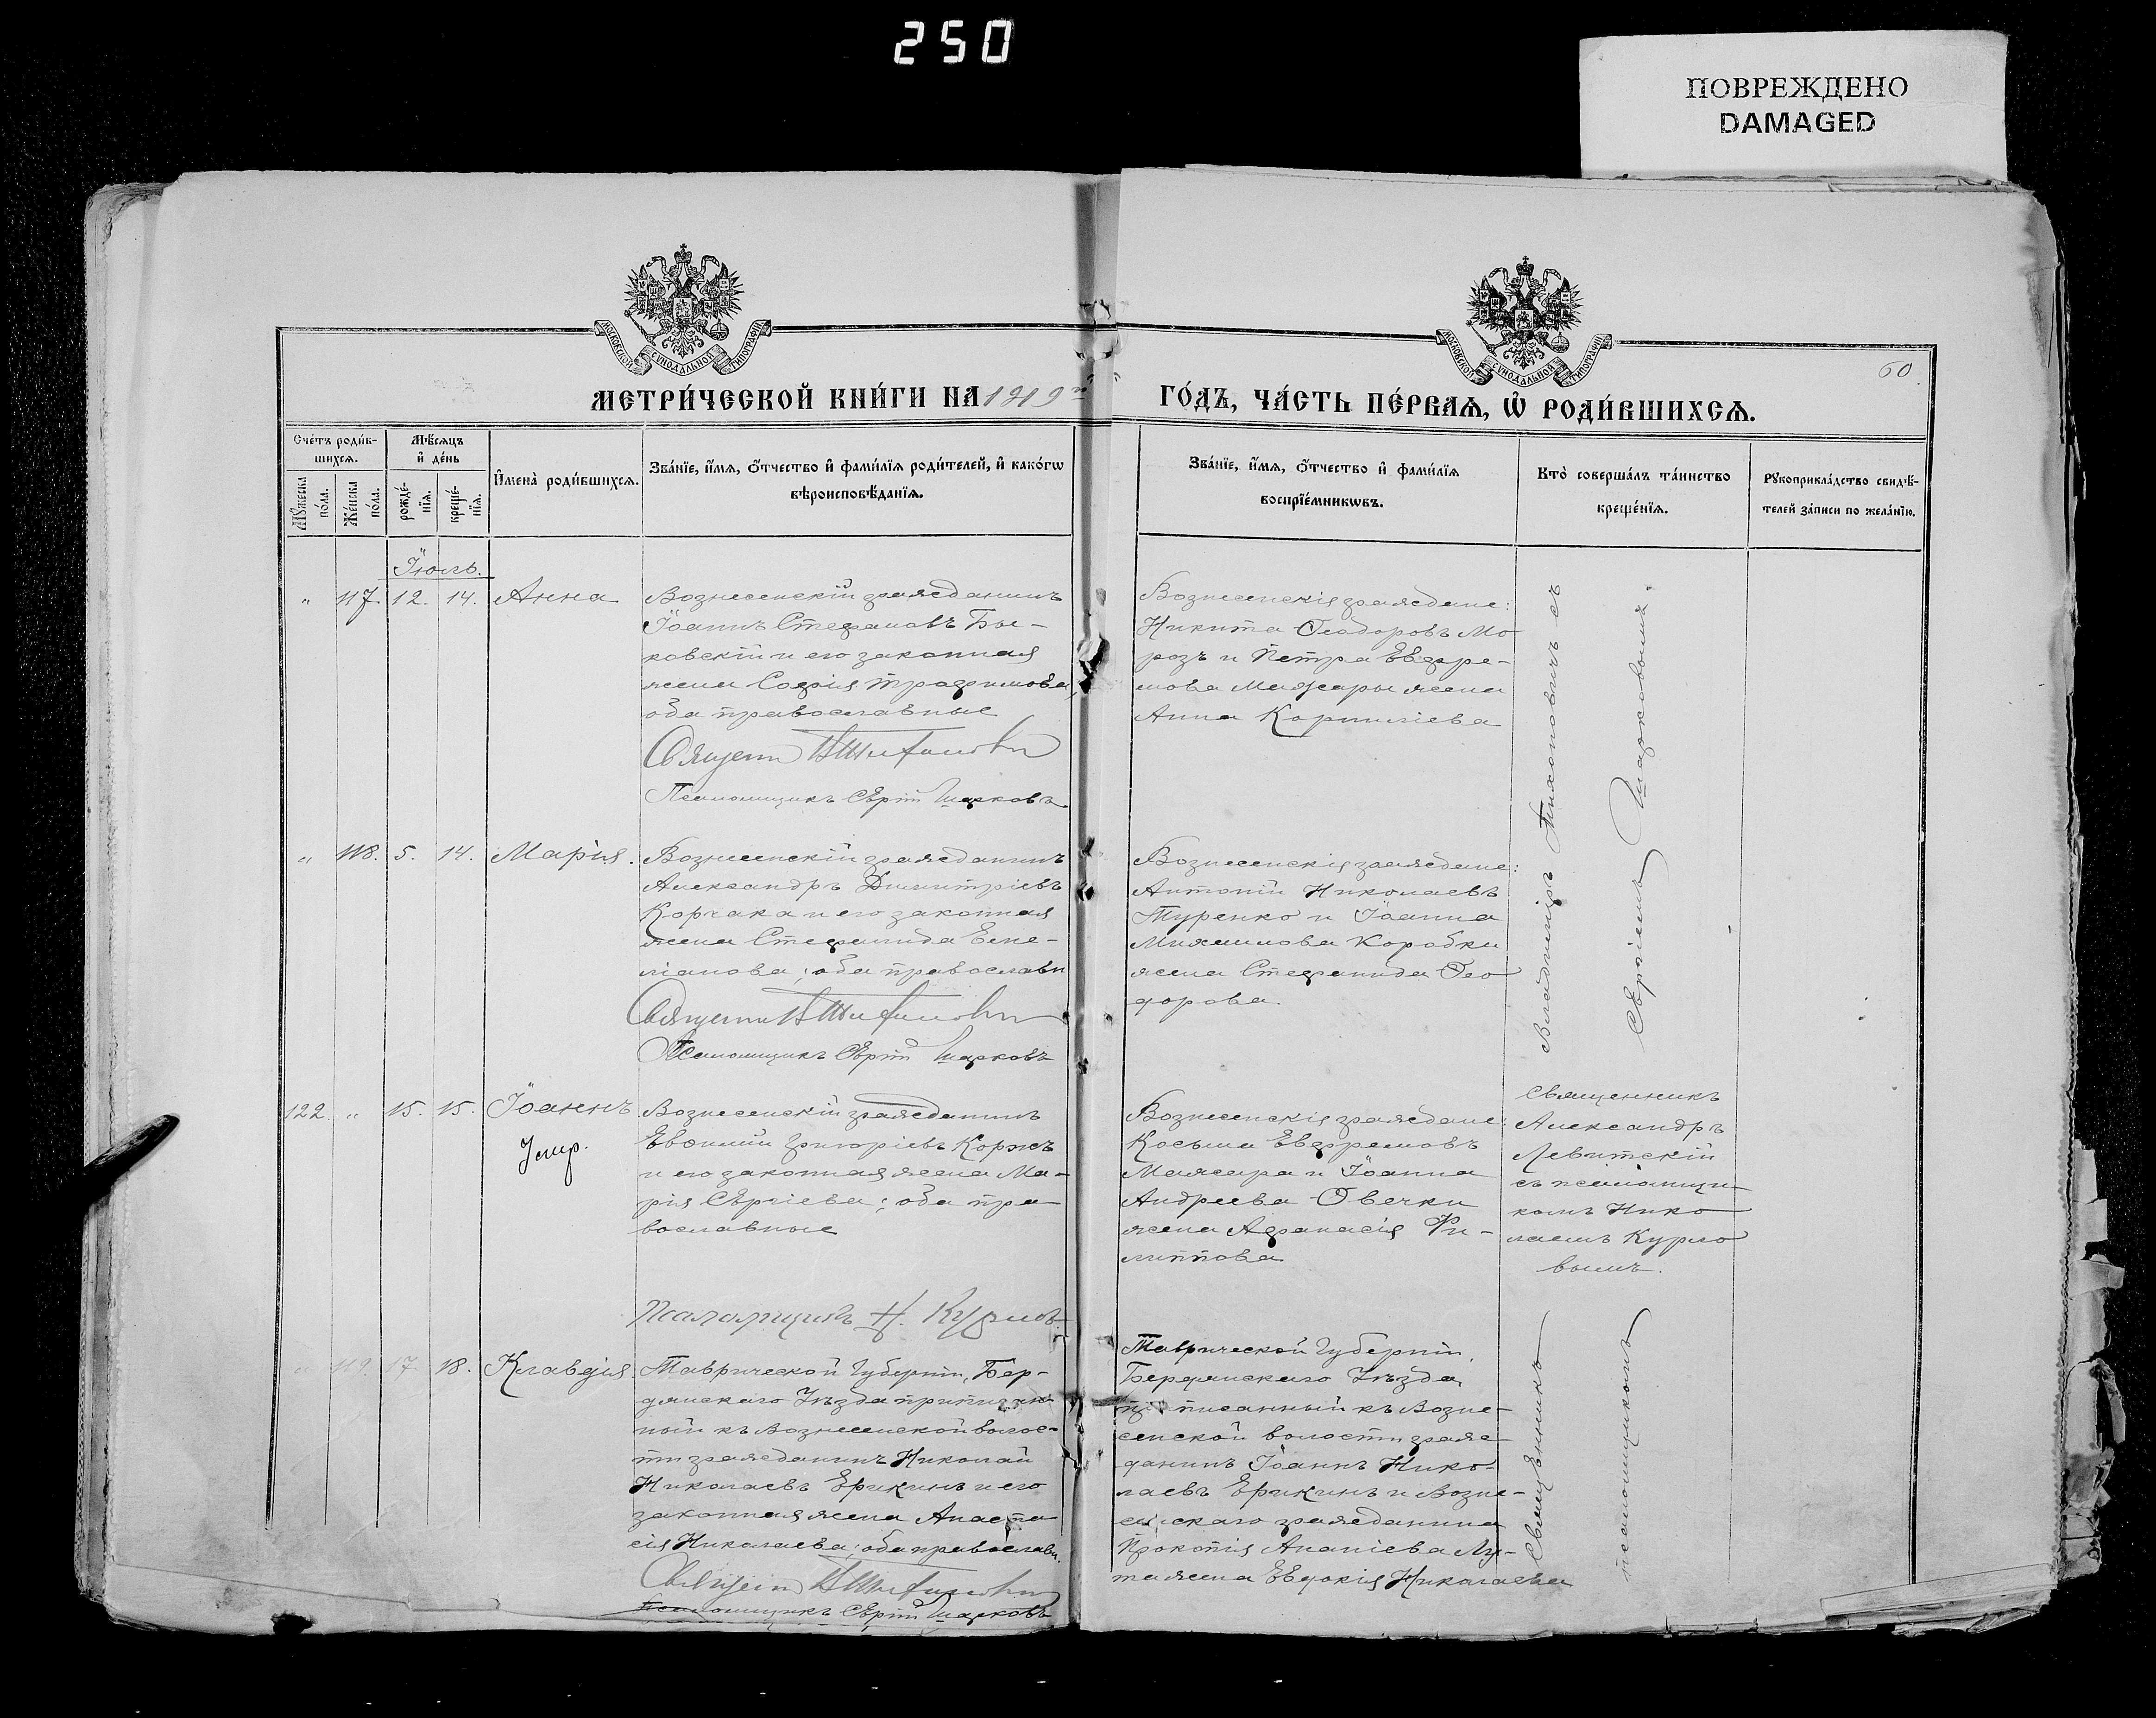 250
ПОВРЕЖДЕНО
DAMAGED
МОСКОВСКОЙ СУНОДАЛЬНОЙ ТИПОГРАФІИ
МОСКОВСКОЙ СУНОДАЛЬНОЙ ТИПОГРАФІИ
60.
МЕТРИ́ЧЕСКОЙ КНИ́ГИ НА 1919
ГО́ДЪ, ЧА́СТЬ ПЕ́РВАѦ, Ѡ҆ РОДИ́ВШИХСѦ.
Сче́тъ роди́в-
шихсѧ.
Мѣ́сѧцъ
и҆ де́нь
Мꙋ́жеска
по́ла.
Же́нска
по́ла.
рожде́-
нїѧ.
креще́-
нїѧ.
И҆мена̀ роди́вшихсѧ.
Зва́нїе, и҆́мѧ, ѻ҆́тчество и҆ фами́лїѧ роди́телей, и҆ како́гѡ
вѣроисповѣ́данїѧ.
Зва́нїе, и҆́мѧ, ѻ҆́тчество и҆ фами́лїѧ
воспрїе́мникѡвъ.
Кто̀ соверша́лъ та́инство
креще́нїѧ.
Рꙋкоприкла́дство свидѣ́-
телей за́писи по жела́нїю.
Іюль.
" 117. 12. 14. Анна
Вознесенскій гражданинъ
Іоаннъ Стефановъ Бы-
ковскій и его законная
жена Софія Трофимова,
оба православные
Священ
Псаломщикъ Сергій Шарковъ
Вознесенскія граждане:
Никита Ѳеодоровъ Мо
розъ и Петра Евфре-
мова Мажары жена
Анна Корниліева
" 118. 5. 14. Марія.
Вознесенскій гражданинъ
Александръ Димитріевъ
Корчака и его законная
жена Стефанида Еме-
ліанова; оба православн
Священ
Псаломщикъ Сергій Шарковъ
Вознесенскія граждане:
Антоній Николаевъ
Туренко и Іоанна
Михаилова Коробки
жена Стефанида Ѳео
дорова.
Владиміръ Тихоновичъ съ
Сергіемъ Шарковымъ.
122. " 15. 15. Іоаннъ
Умр.
Вознесенскій гражданинъ
Евѳимій Григоріевъ Коржъ
и его законная жена Ма-
рія Сергіева; оба пра
вославные
Псаломщикъ Н. Курлов
Вознесенскія граждане:
Косьма Евфремовъ
Мажара и Іоанна
Андреева Овечки
жена Афанасія Фи-
липпова
Священникъ
Александръ
Левитскій
съ псаломщи-
комъ Нико
лаемъ Курло
вымъ.
" 119. 17. 18. Клавдія
Таврической Губерніи, Бер-
дянскаго Уѣзда приписан
ный къ Вознесенской волос-
ти гражданинъ Николай
Николаевъ Ерикинъ и его
законная жена Анаста
сія Николаева; оба православн.
Священ
Псаломщикъ Сергій Шарковъ
Таврической Губерніи,
Бердянскаго Уѣзда,
приписанный къ Возне-
сенской волости граж
данинъ Іоаннъ Нико-
лаевъ Ерикинъ и Возне-
сенскаго гражданина
Прокопія Ананіева Лу-
та жена Евдокія Николаева
Священникъ
псаломщикомъ